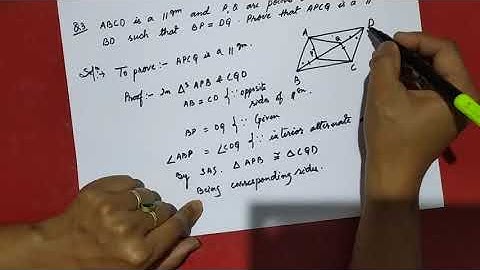 Q.3 ABCD is a ||gm and P, Q are points
BD such that BP = DQ. Prove that APCQ is a ||
Soln:→ To prove:- APCQ is a ||gm.
Proof:- In Δs APB & CQD
AB = CD {∵ opposite
sides of ||gm.
BP = DQ {∵ Given
∠ABP = ∠CDQ {∵ interior alternate
By SAS. Δ APB ≅ Δ CQD
Being corresponding sides.
A
D
Q
P
B
C